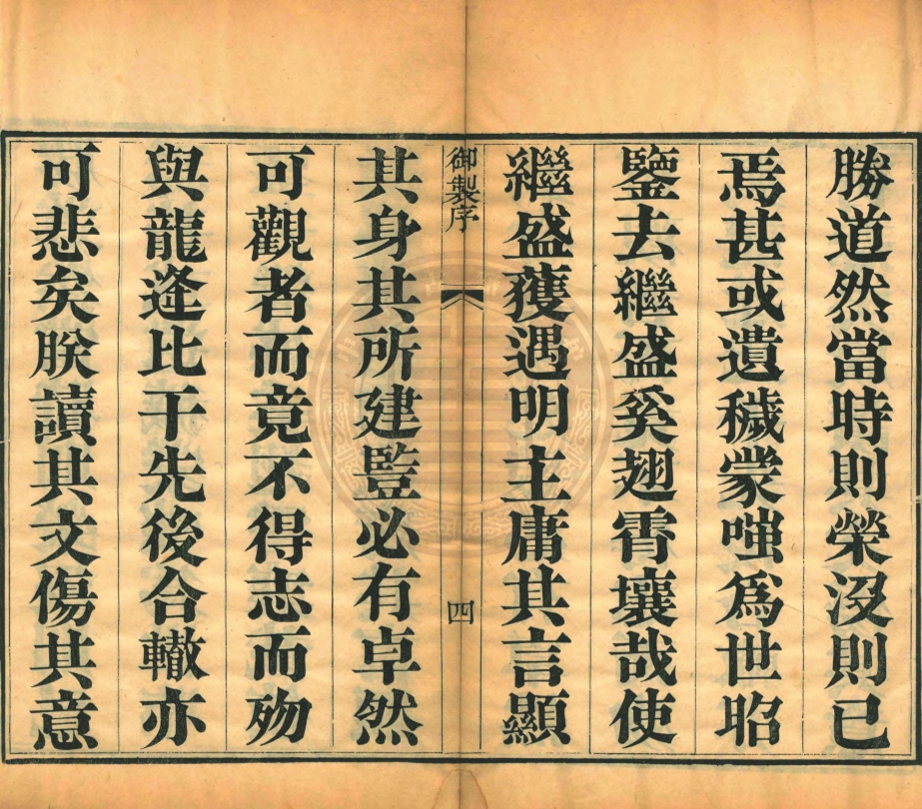 勝道然當時則榮沒則已
焉甚或遺穢蒙嗤爲世昭
鑒去繼盛奚翅霄壤哉使
繼盛獲遇明主庸其言顯
御製序
四
其身其所建豎必有卓然
可觀者而竟不得志而歾
與龍逄比干先後合轍亦
可悲矣朕讀其文傷其意